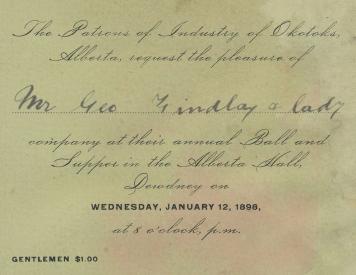 The Patrons of Industry of Okotoks,
Alberta, request the pleasure of
Mr Geo Findlay & lady
company at their annual Ball and
Supper in the Alberta Hall,
Dewdney on
WEDNESDAY, JANUARY 12, 1898,
at 8 o'clock, p.m.
GENTLEMEN $1.00